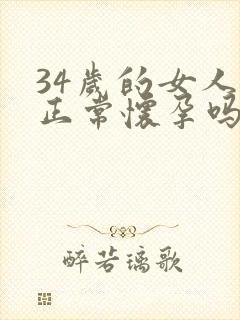 34歲的女人
正常懷孕嗎
醉若璃歌